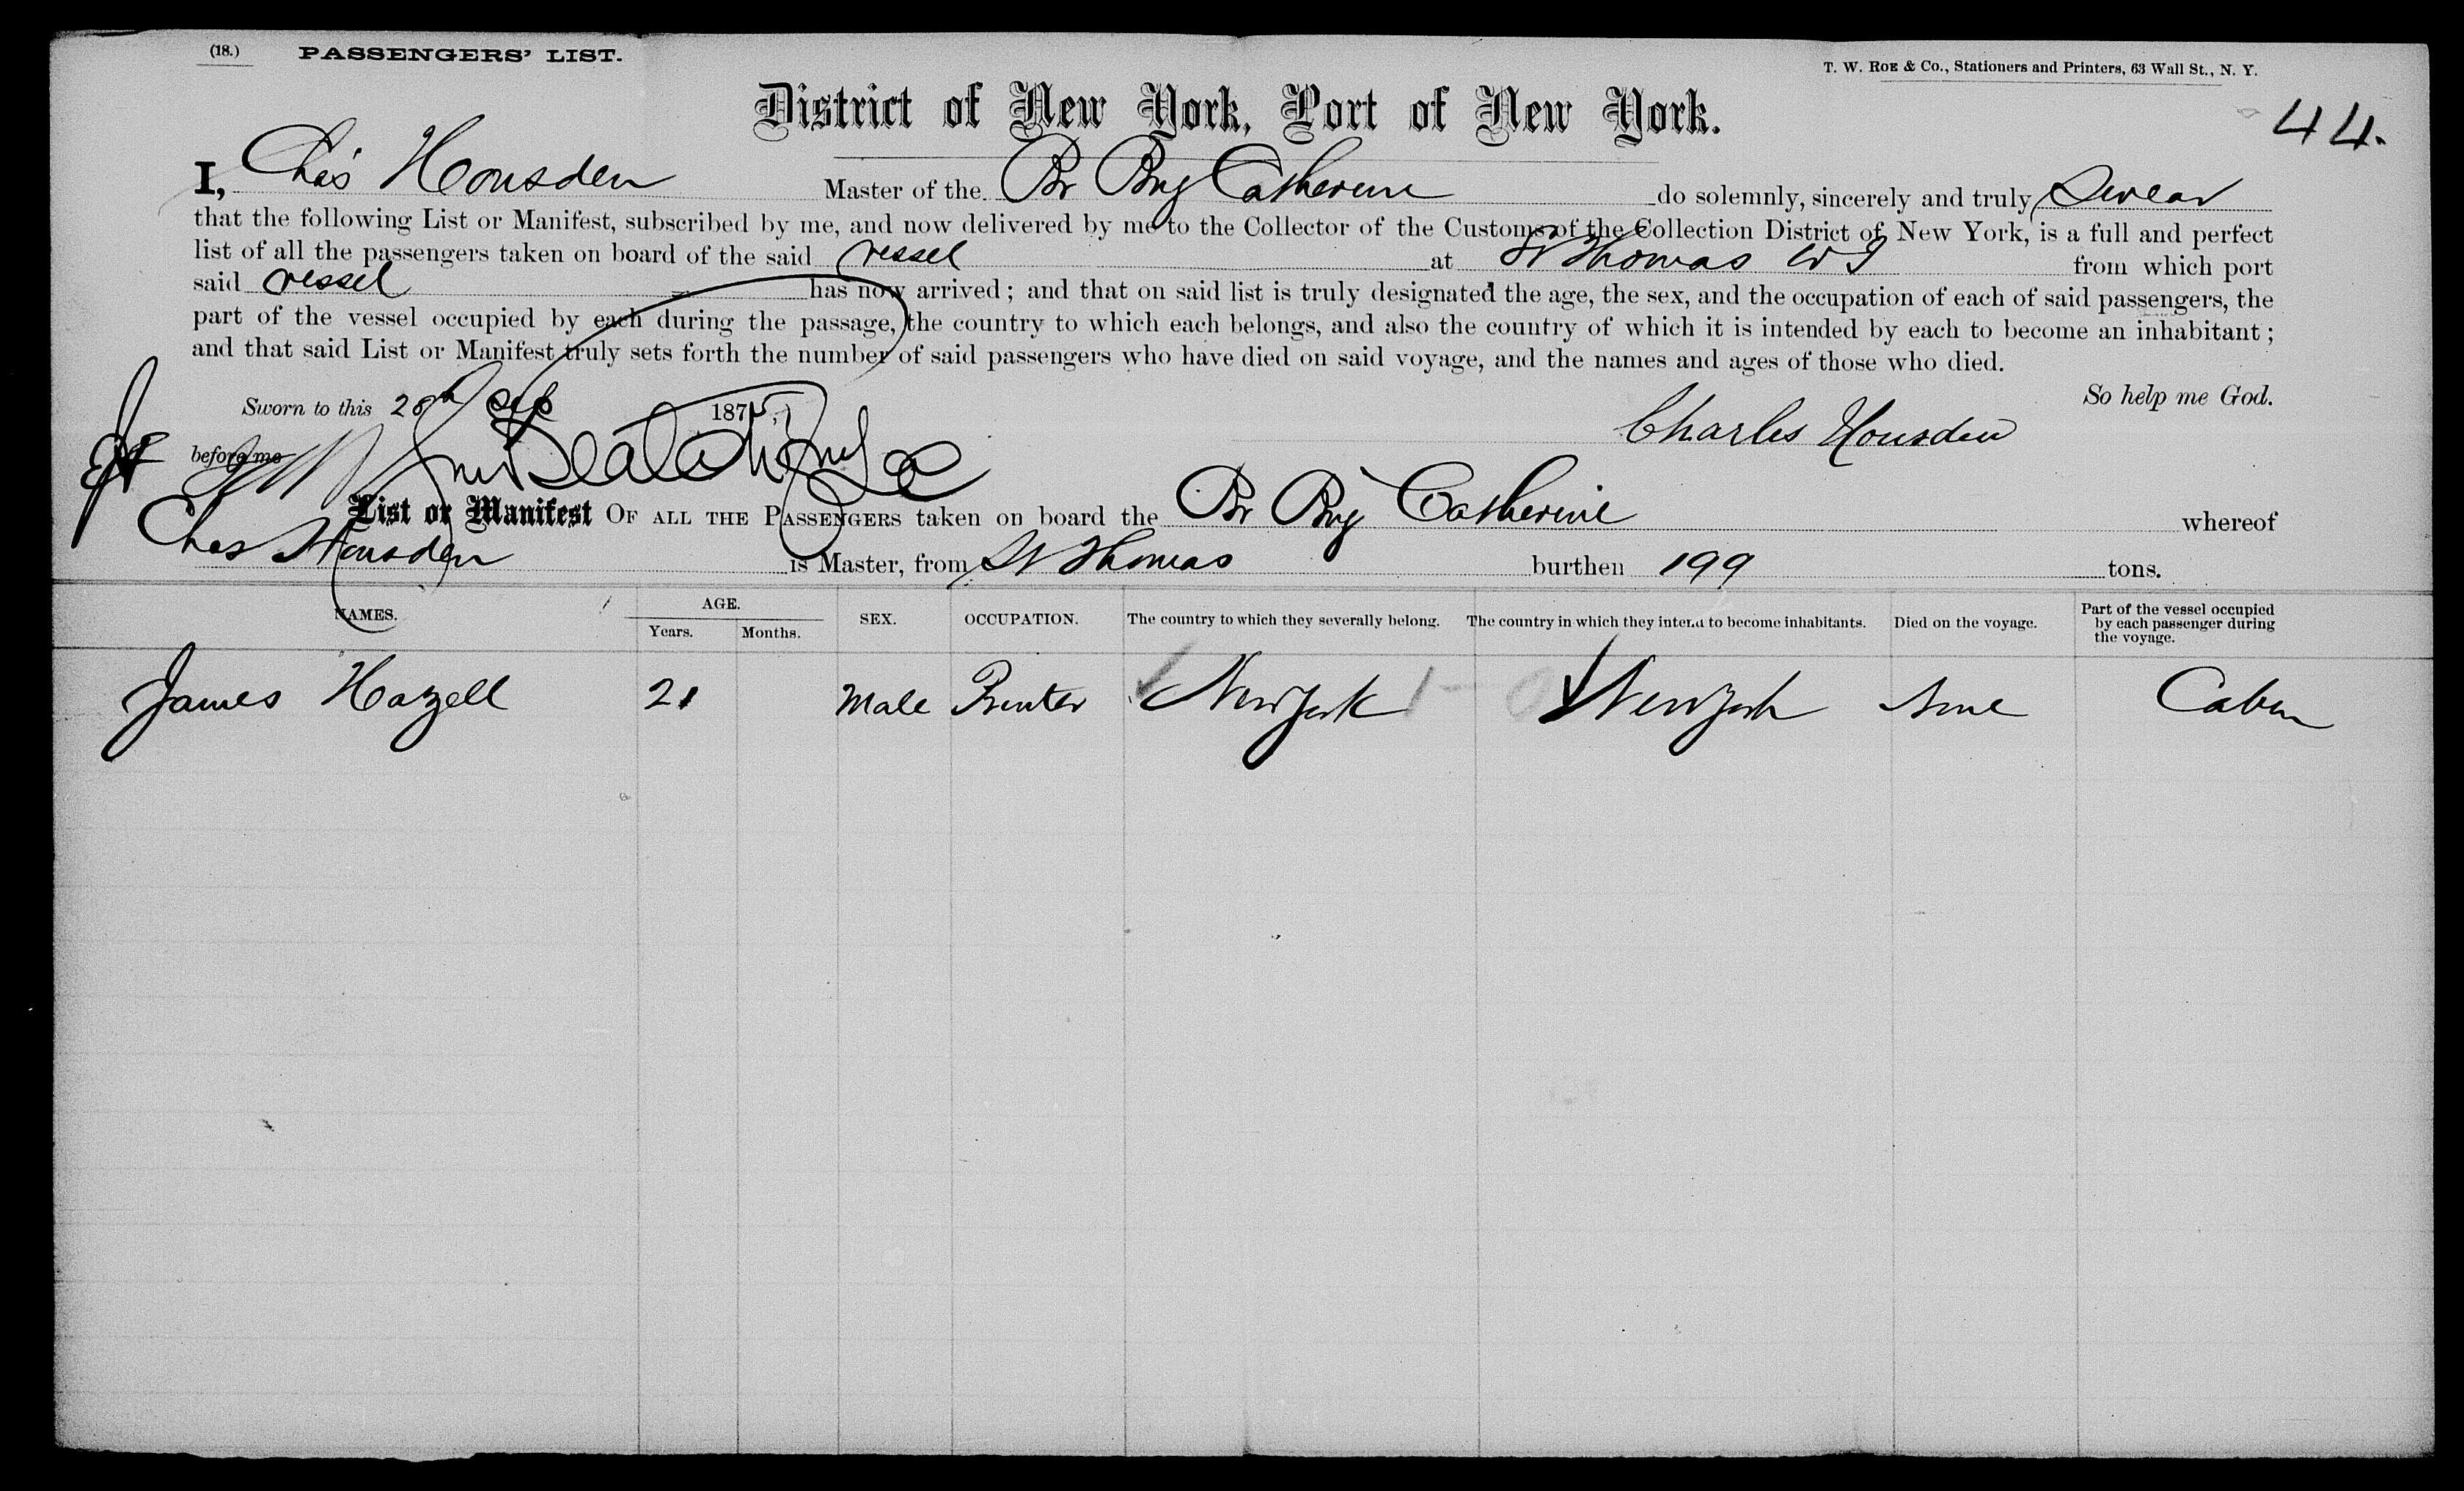 (18.) PASSENGERS' LIST.
T. W. ROE & Co., Stationers and Printers, 63 Wall St., N. Y.
District of New York, Port of New York.
44.
I, Chas Housden Master of the Br Brig Catherine do solemnly, sincerely and truly Swear
that the following List or Manifest, subscribed by me, and now delivered by me to the Collector of the Customs of the Collection District of New York, is a full and perfect
list of all the passengers taken on board of the said vessel at St Thomas W I from which port
said vessel has now arrived; and that on said list is truly designated the age, the sex, and the occupation of each of said passengers, the
part of the vessel occupied by each during the passage, the country to which each belongs, and also the country of which it is intended by each to become an inhabitant;
and that said List or Manifest truly sets forth the number of said passengers who have died on said voyage, and the names and ages of those who died.
So help me God.
Sworn to this 28th Sep 1875
Charles Housden
before me
List or Manifest OF ALL THE PASSENGERS taken on board the Br Brig Catherine whereof
Chas Housden is Master, from St Thomas burthen 199 tons.
NAMES. AGE. Years. Months. SEX. OCCUPATION. The country to which they severally belong. The country in which they intend to become inhabitants. Died on the voyage. Part of the vessel occupied by each passenger during the voyage.
James Hazell 21 Male Printer New York 1 New York None Cabin